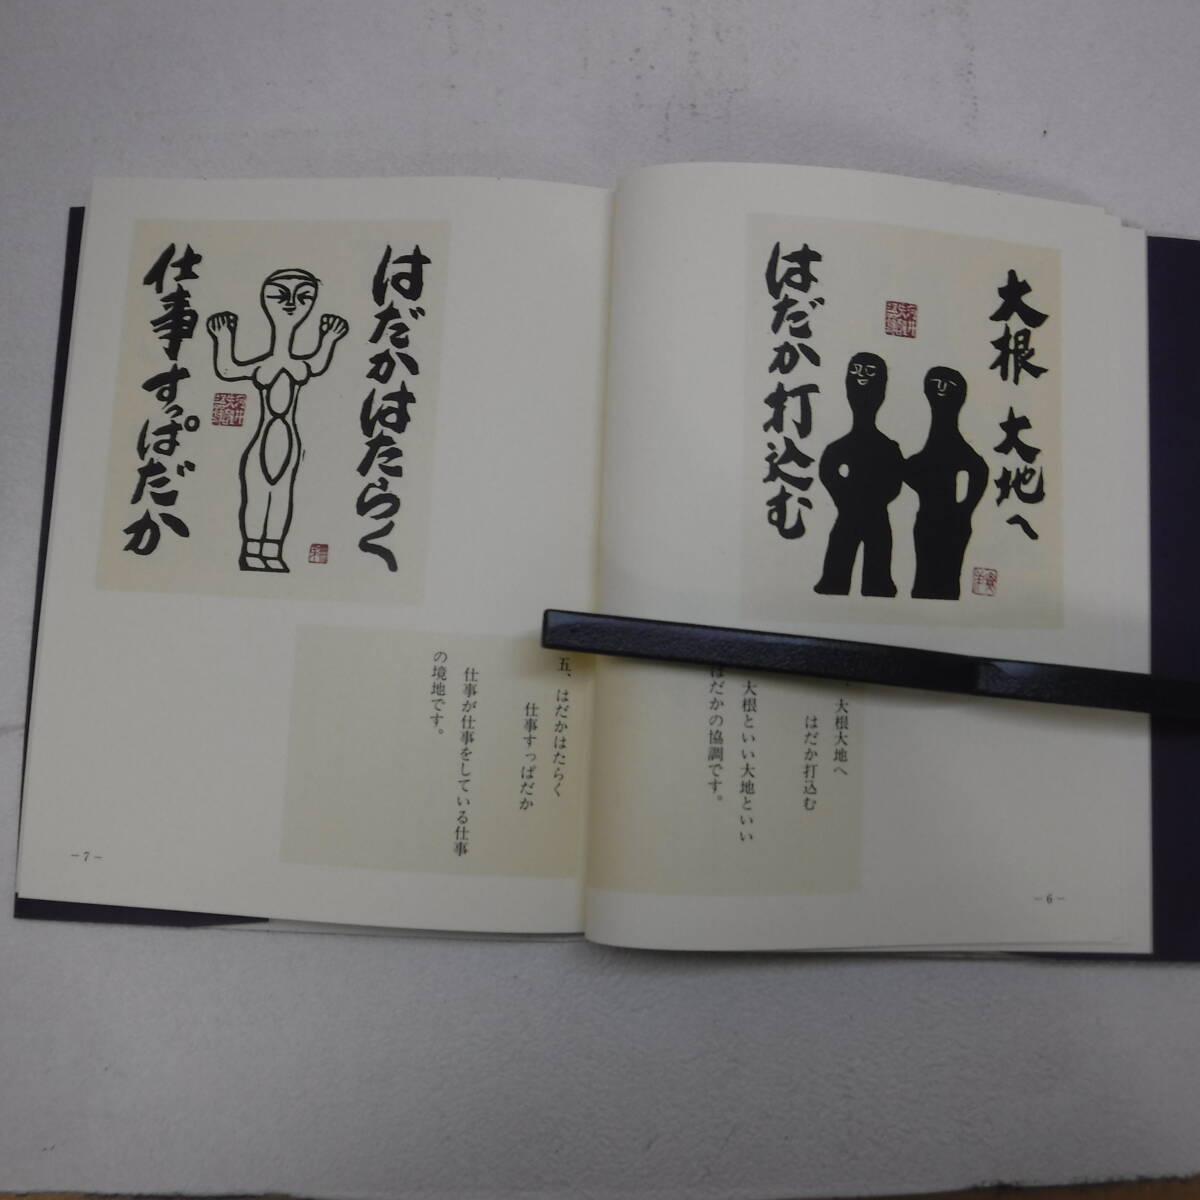 大根 大地へ
はだか打込む
大根大地へ
はだか打込む
大根といい大地といい
はだかの協調です。
－6－
はだかはたらく
仕事すっぱだか
五、はだかはたらく
仕事すっぱだか
仕事が仕事をしている仕事
の境地です。
－7－